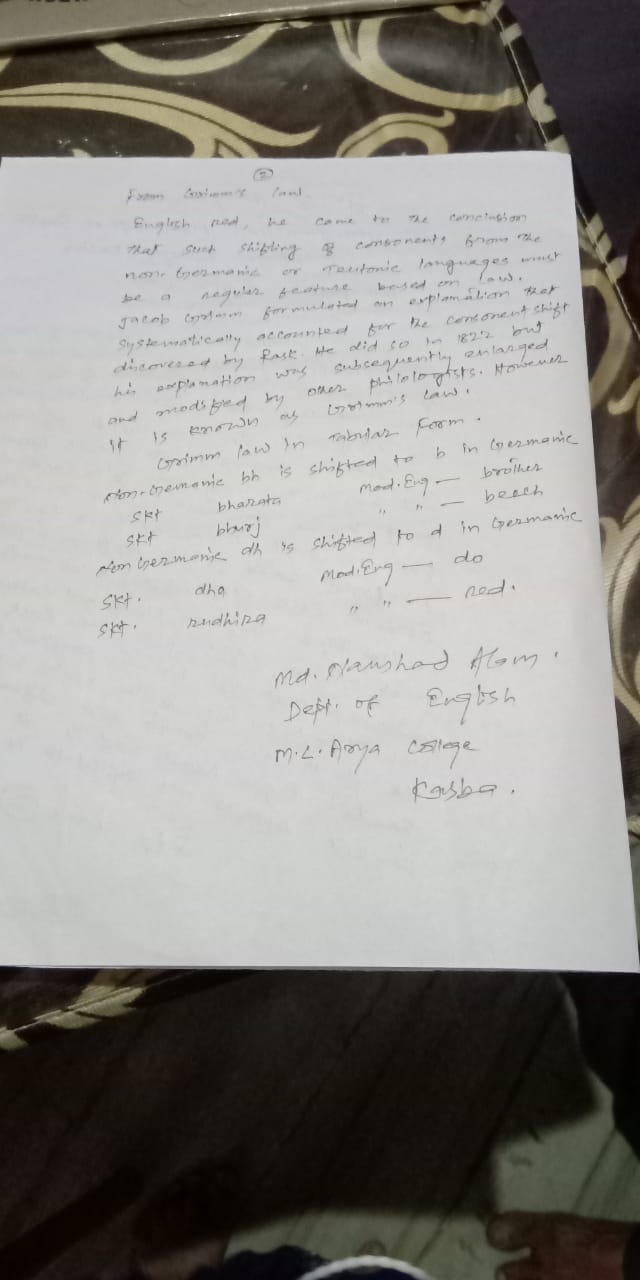 ②
From Grimm's law
English red, he came to the conclusion
that such shifting of consonents from the
non-Germanic or Teutonic languages must
be a regular feature based on law.
Jacob Grimm formulated an explanation that
systematically accounted for the consonent shift
discovered by Rask. He did so in 1822 but
his explanation was subsequently enlarged
and modified by other philologists. However
it is known as Grimm's law.
Grimm law in Tabular form.
Non-Gemanic bh is shifted to b in Germanic
Skt bharata Mod.Eng — brother
Skt bhurj " " — beech
Non Germanic dh is shifted to d in Germanic
Skt. dha Mod.Eng — do
Skt. rudhira " " — red.
Md. Naushad Alam.
Dept. of English
M.L. Arya College
Kasba.